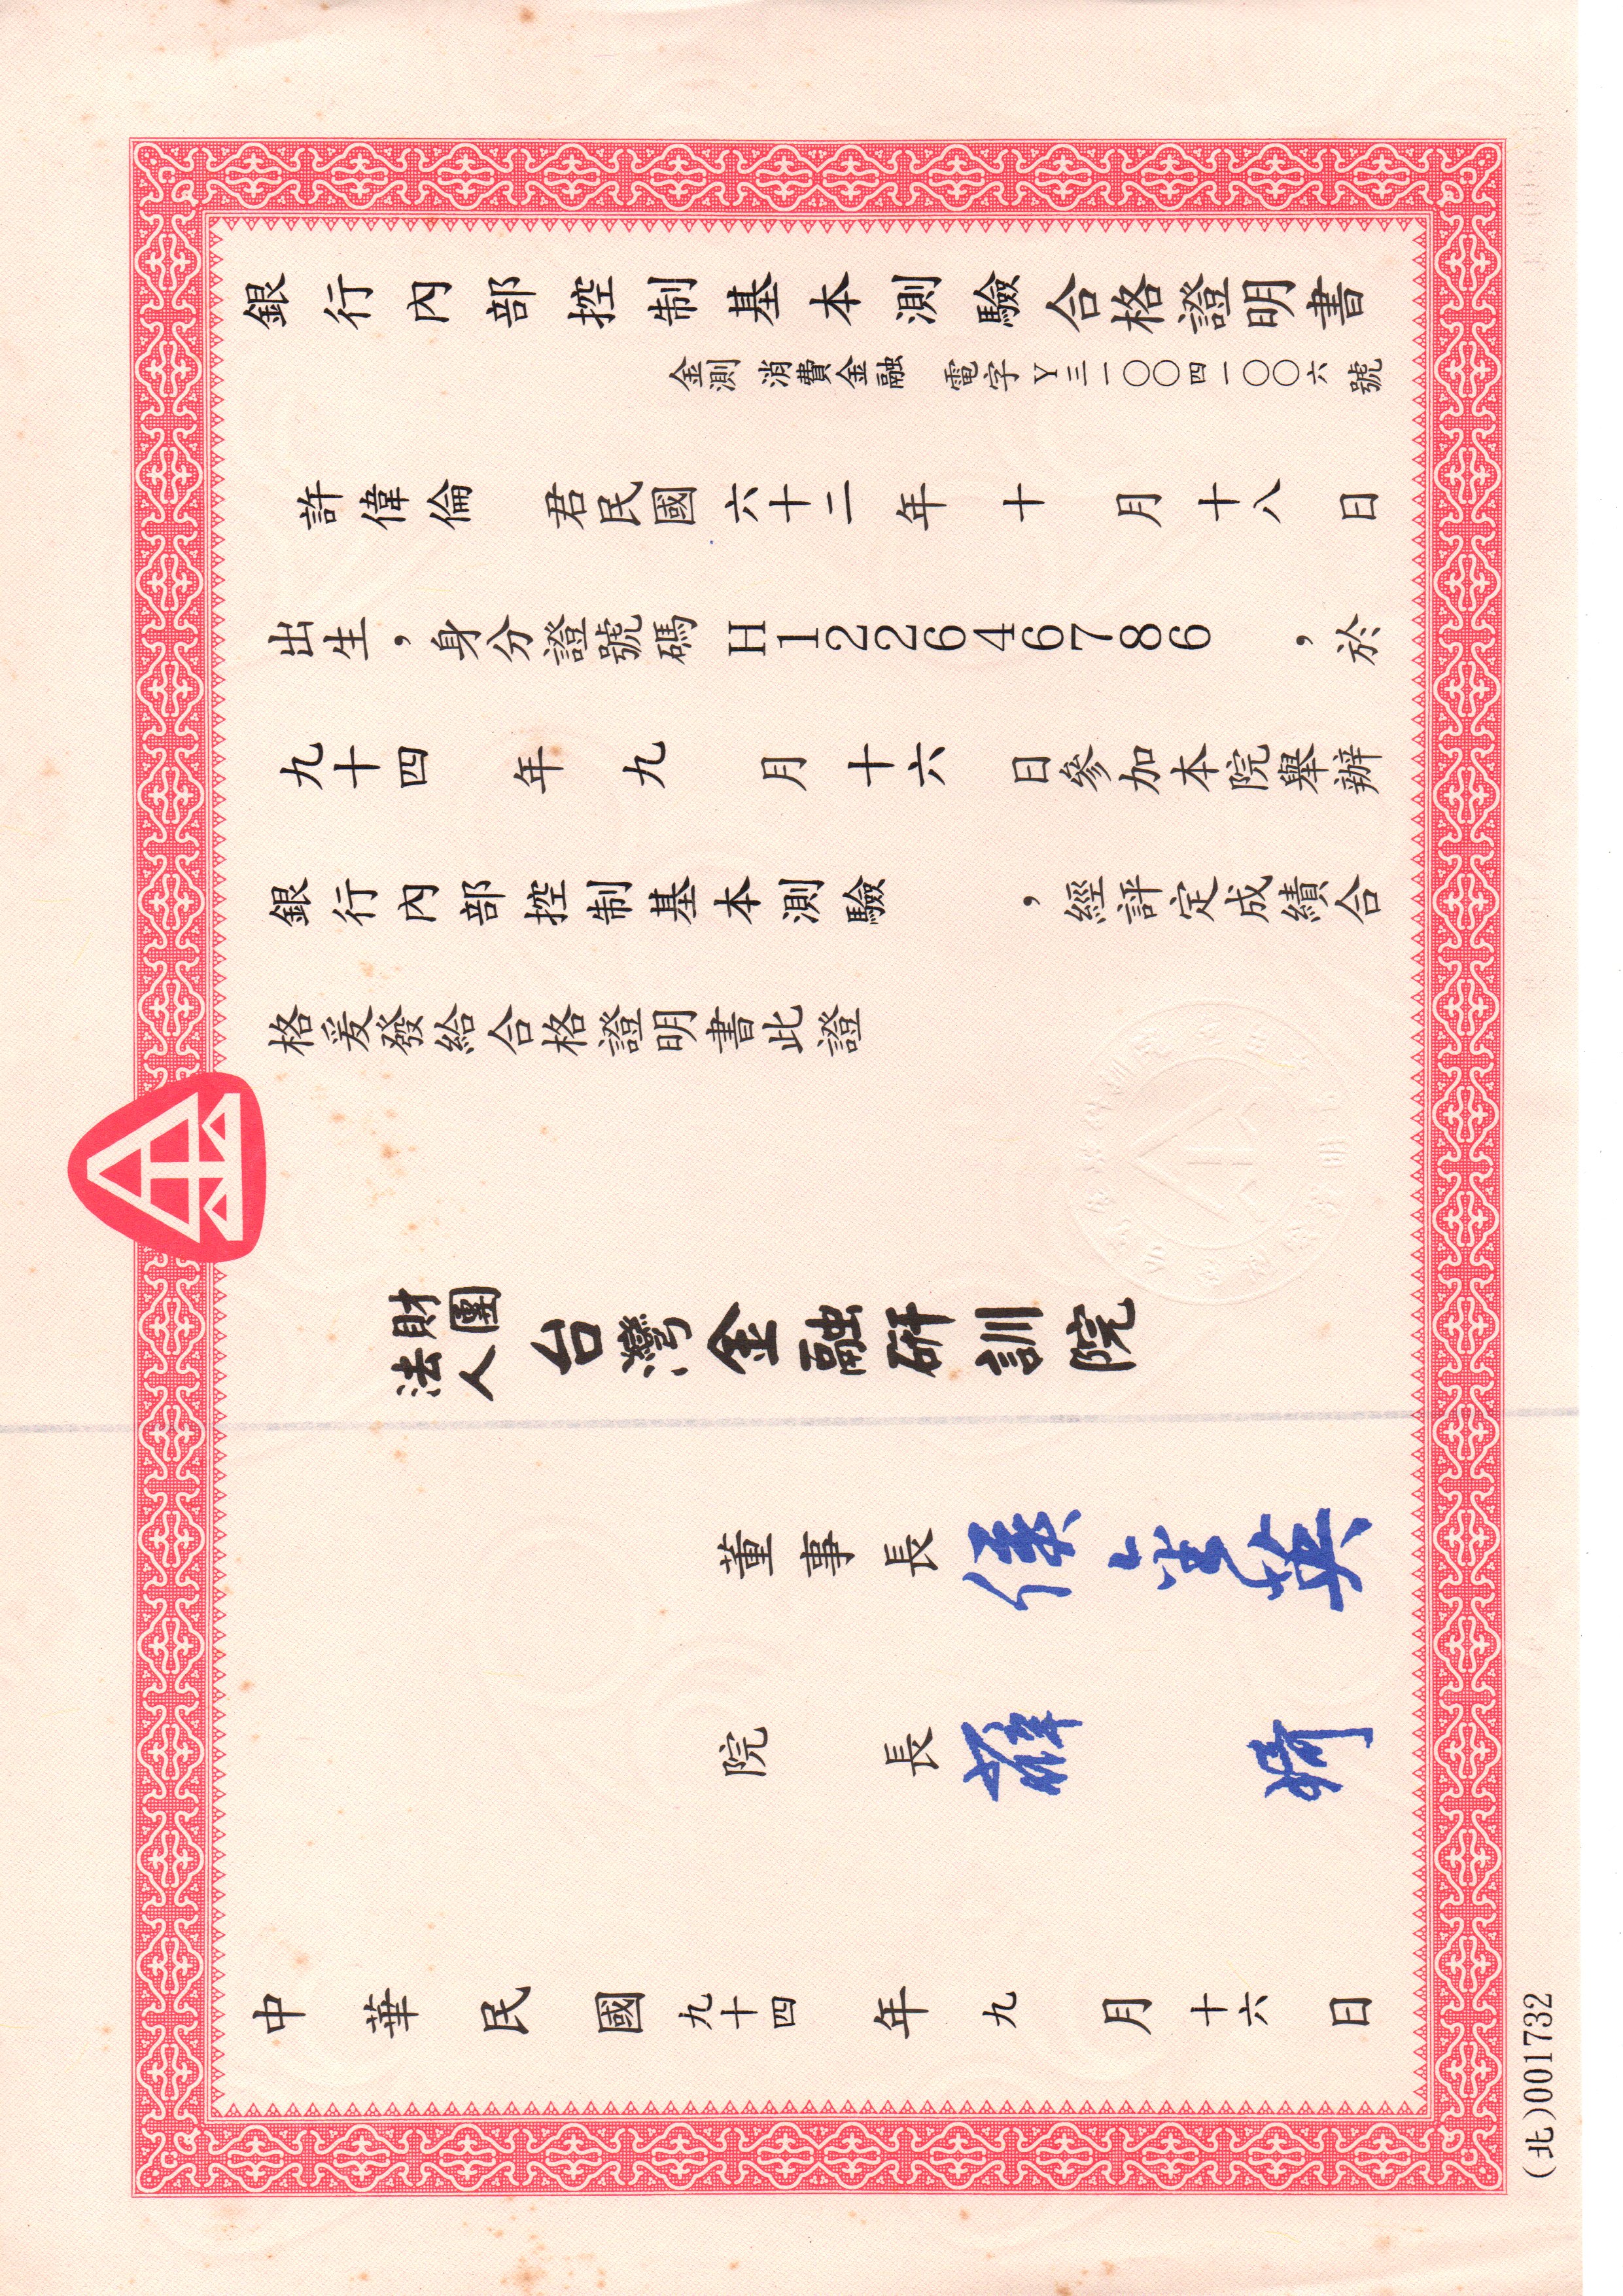 銀行內部控制基本測驗合格證明書
金測 消費金融 電字Y三一〇〇四一〇〇六號
許偉倫 君民國六十二年十月十八日
出生，身分證號碼H122646786，於
九十四年九月十六日參加本院舉辦
銀行內部控制基本測驗，經評定成績合
格爰發給合格證明書此證
財團法人台灣金融研訓院
董事長
院長 薛
中華民國九十四年九月十六日
(北)001732